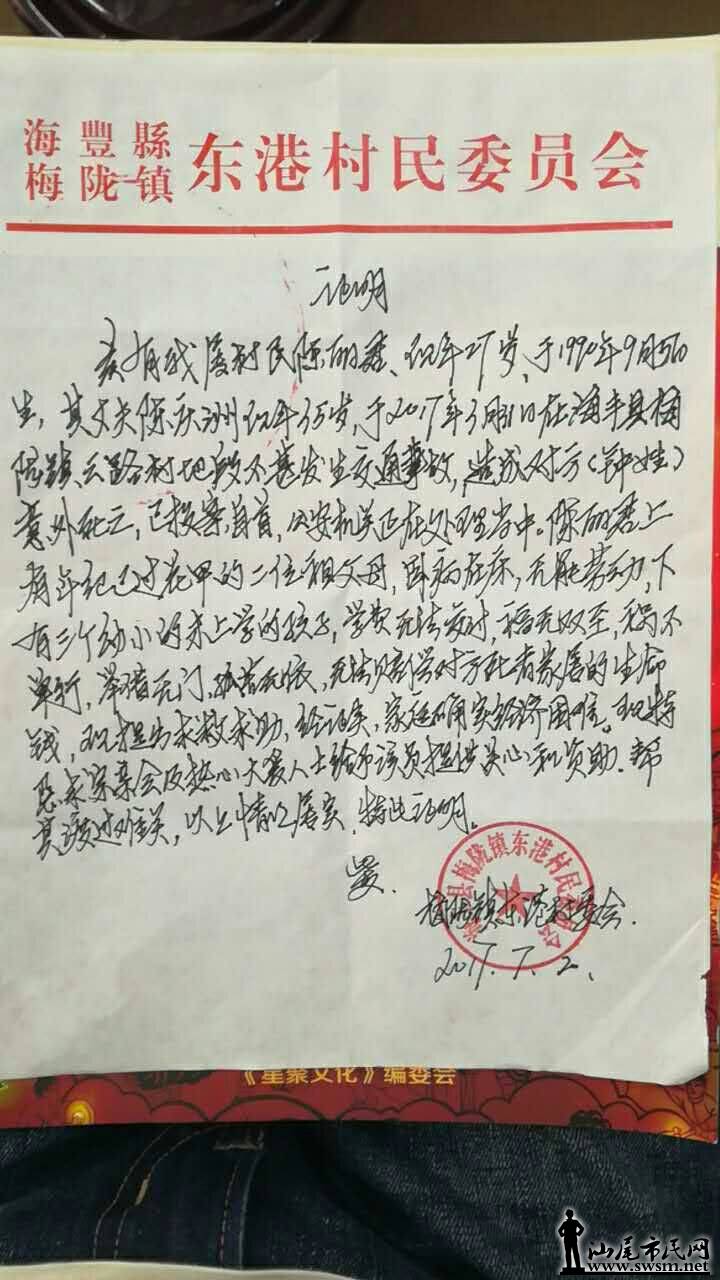 海豐縣
梅陇镇
东港村民委员会
证明
兹有我属村民陈丽君、现年27岁、于1990年9月5日
生，其丈夫陈庆洲现年35岁，于2017年3月31日在海丰县梅
陇镇云路村地段不慎发生交通事故，造成对方（钟姓）
意外死亡，已投案自首，公安机关正在处理当中。陈丽君上
有年纪已过花甲的二位祖父母，卧病在床，无能劳动，下
有三个幼小的未上学的孩子，学费无法应付，福无双至，祸不
单行，举借无门，孤苦无依，无法赔偿对方死者家属的生命
钱，现提出求救求助，经证实，家庭确实经济困难。现特
恳求宗亲会及热心大爱人士给予该员提供关心和资助，帮
其渡过难关，以上情况属实，特此证明。
梅陇镇东港村委会
2017.7.2、
海丰县梅陇镇东港村民委员会
《星聚文化》编委会
汕尾市民网
www.swsm.net